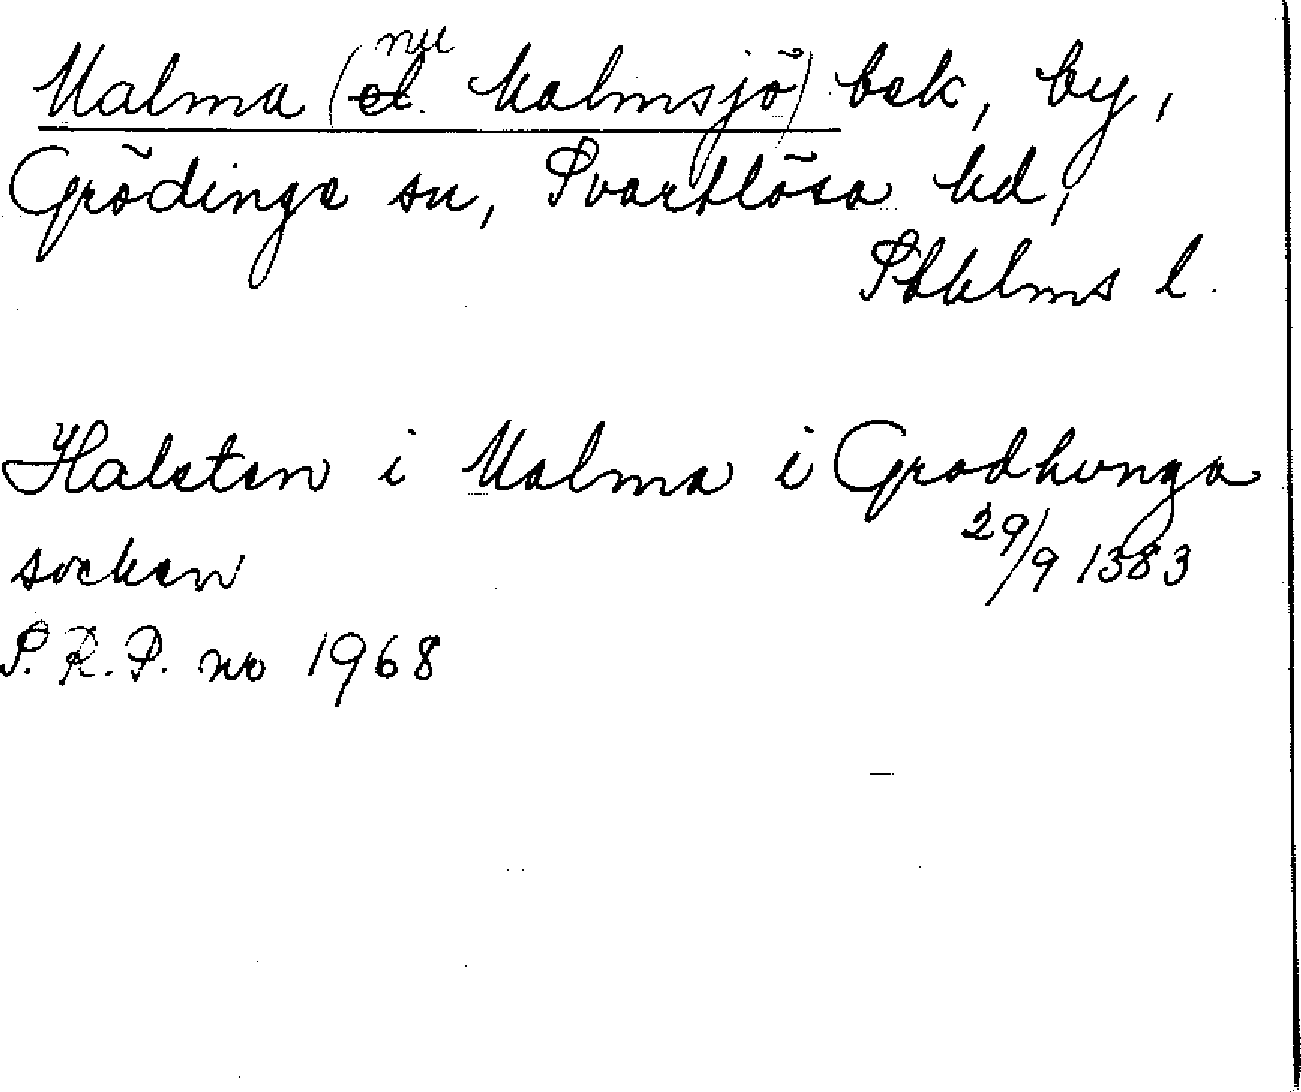 Malma (nu Malmsjö) bek, by,
Grödinge sn, Svartlösa hd,
Sthlms l.
Halsten i Malma i Grodhunga
socken 29/9 1383
S.R.P. no 1968